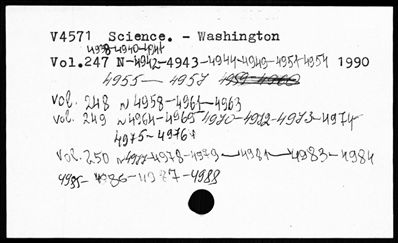 V4571 Science. - Washington
4938-4940-4941
Vol.247 N-4942-4943-4944-4949-4951-4954 1990
4955-4957 4959-4960
Vol. 248 N4958-4961-4963
Vol. 249 N4964-4965 4970-4972-4973-4974
4975-4976
Vol. 250 N4977-4978-4979-4981-4983-4984
4985-4986-4987-4988